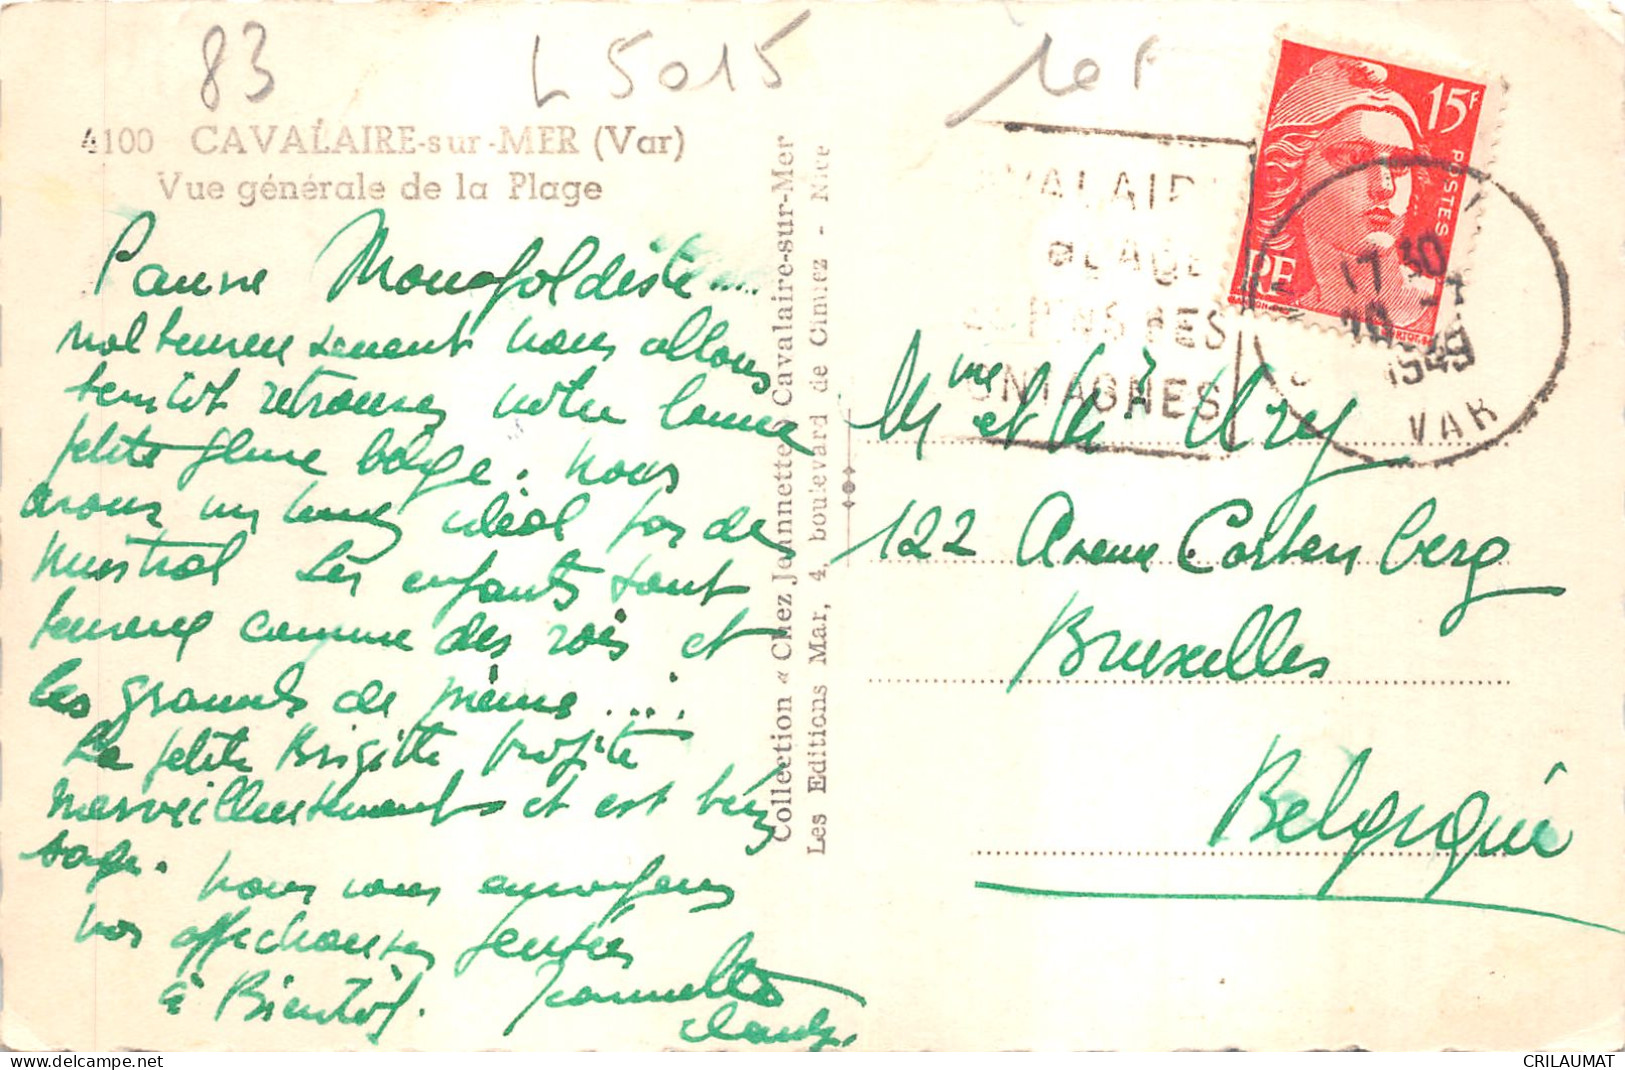 83
L 5015
10 F
4100 CAVALAIRE-sur-MER (Var)
Vue générale de la Plage
nous allons
bientôt retrouver notre bonne
petite belge. Nous
avons un temps idéal pas de
Mistral Les enfants sont
comme des rois et
les grands de même ....
La petite Brigitte profite
merveilleusement et est bien
sage. Nous vous envoyons
nos affectueuses pensées
à Bientôt. Jeannette
Collection « Chez Jeannette » Cavalaire-sur-Mer
Les Editions Mar, 4, boulevard de Cimiez - Nice
VALAIR
PLAGE
PINS SES
ONTAGNES
15F
POSTES
RF
17 30
1949
VAR
Mme et Mr
122 Avenue Cortenberg
Bruxelles
Belgique
CRILAUMAT